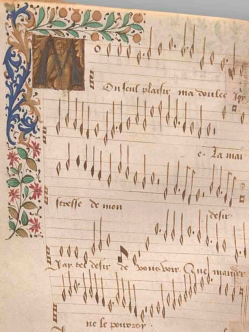 On seul plaisir ma doulce Joye
La mai
stresse de mon desir
Jay tel desir de vous voir Que mangier
ne se pourroy